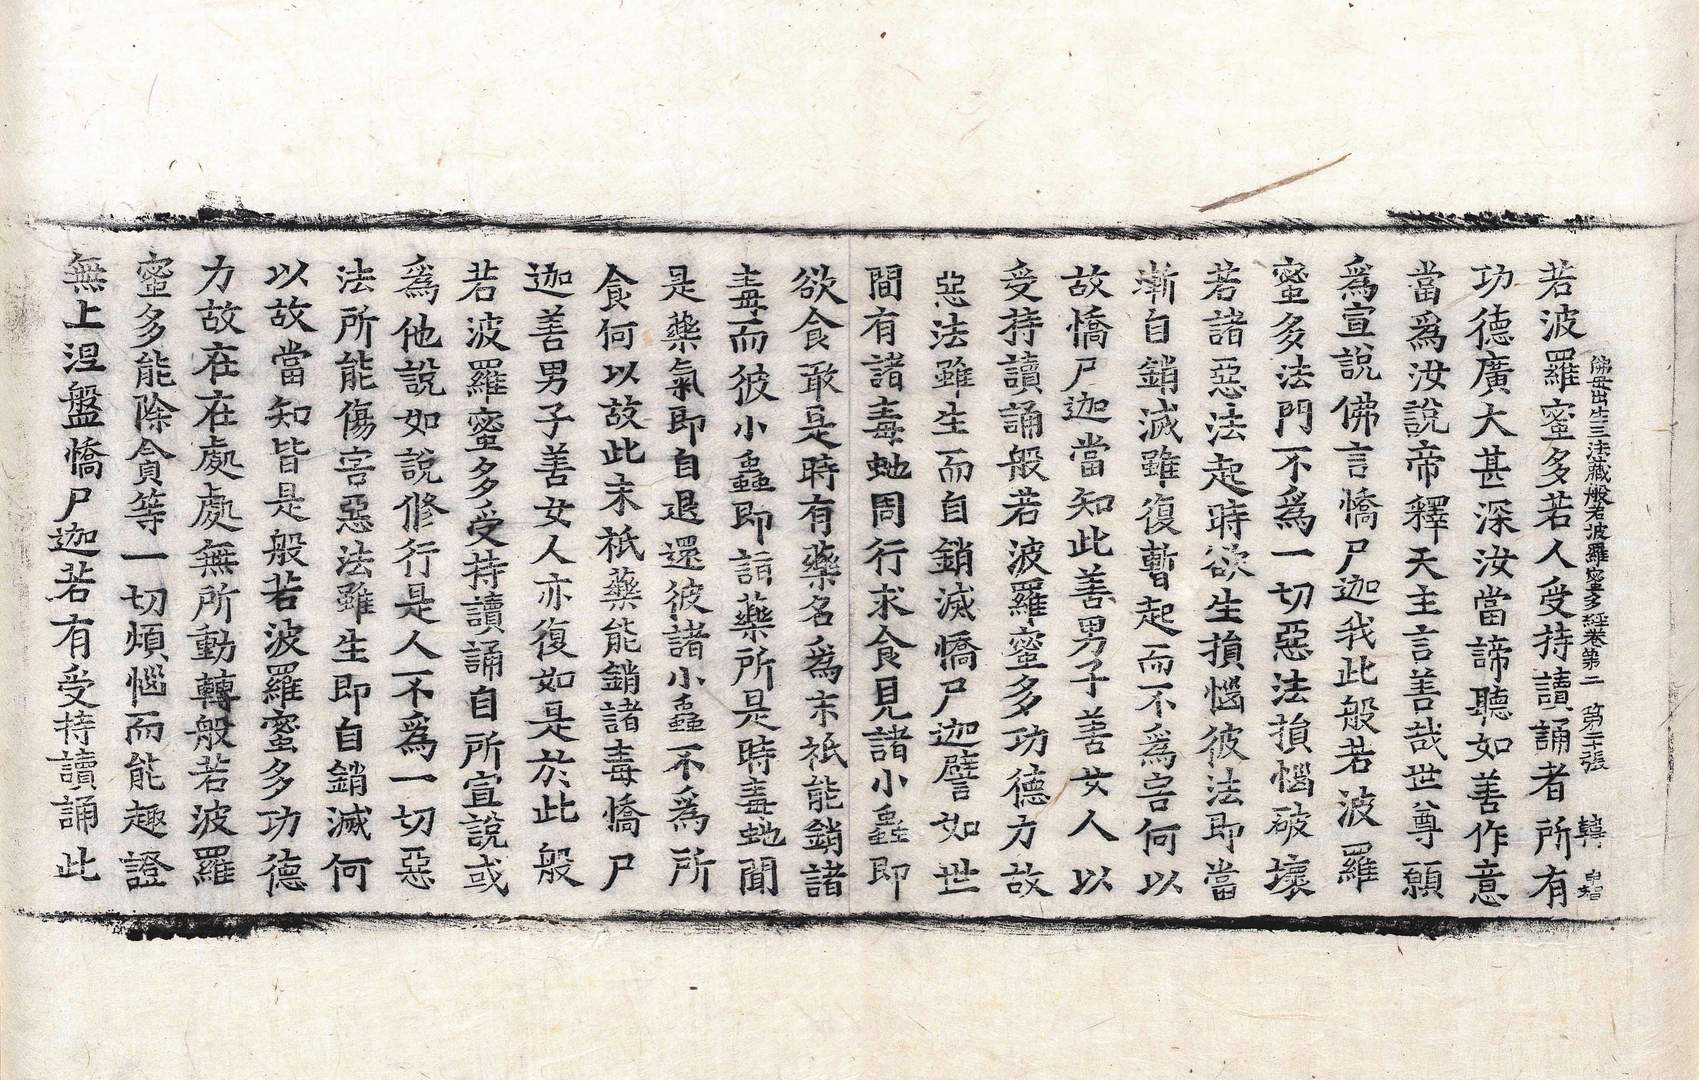 佛母出生三法藏般若波羅蜜多經卷第二 第二十張 轉
若波羅蜜多若人受持讀誦者所有
功德廣大甚深汝當諦聽如善作意
當爲汝說帝釋天主言善哉世尊願
爲宣說佛言憍尸迦我此般若波羅
蜜多法門不爲一切惡法損惱破壞
若諸惡法起時欲生損惱彼法即當
漸自銷滅雖復暫起而不爲害何以
故憍尸迦當知此善男子善女人以
受持讀誦般若波羅蜜多功德力故
惡法雖生而自銷滅憍尸迦譬如世
間有諸毒虵周行求食見諸小蟲即
欲食敢是時有藥名爲末祇能銷諸
毒而彼小蟲即詣藥所是時毒虵聞
是藥氣即自退還彼諸小蟲不爲所
食何以故此末祇藥能銷諸毒憍尸
迦善男子善女人亦復如是於此般
若波羅蜜多受持讀誦自所宣說或
爲他說如說修行是人不爲一切惡
法所能傷害惡法雖生即自銷滅何
以故當知皆是般若波羅蜜多功德
力故在在處處無所動轉般若波羅
蜜多能除貪等一切煩惱而能趣證
無上涅盤憍尸迦若有受持讀誦此